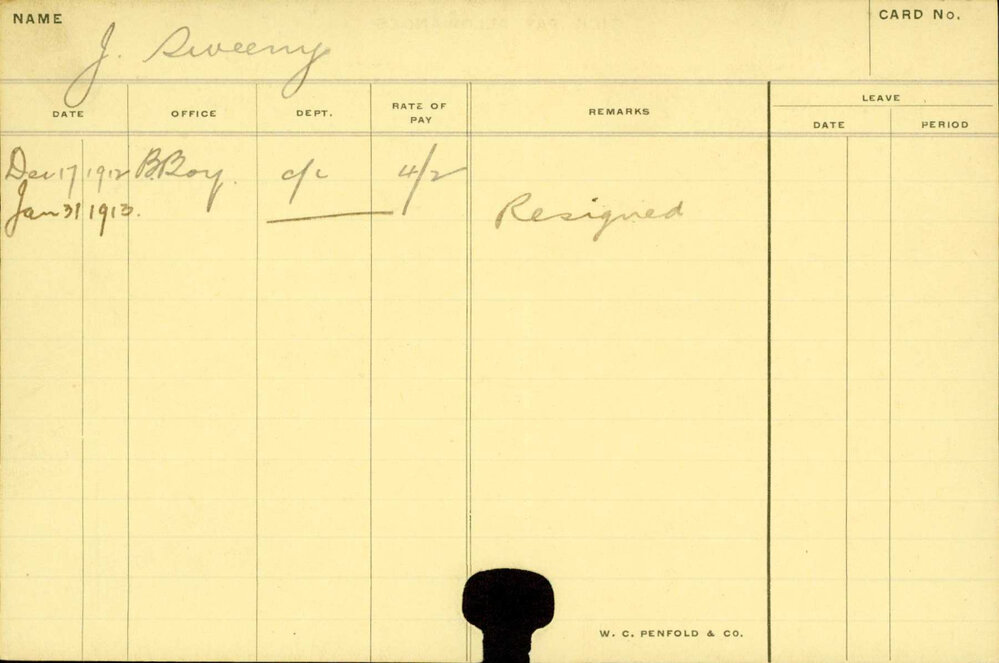 NAME
J. Sweeny
CARD No.
DATE OFFICE DEPT. RATE OF PAY REMARKS LEAVE
DATE PERIOD
Dec 17 1912 B.Boy. c/c 4/2
Jan 31 1913. Resigned
W. C. PENFOLD & CO.